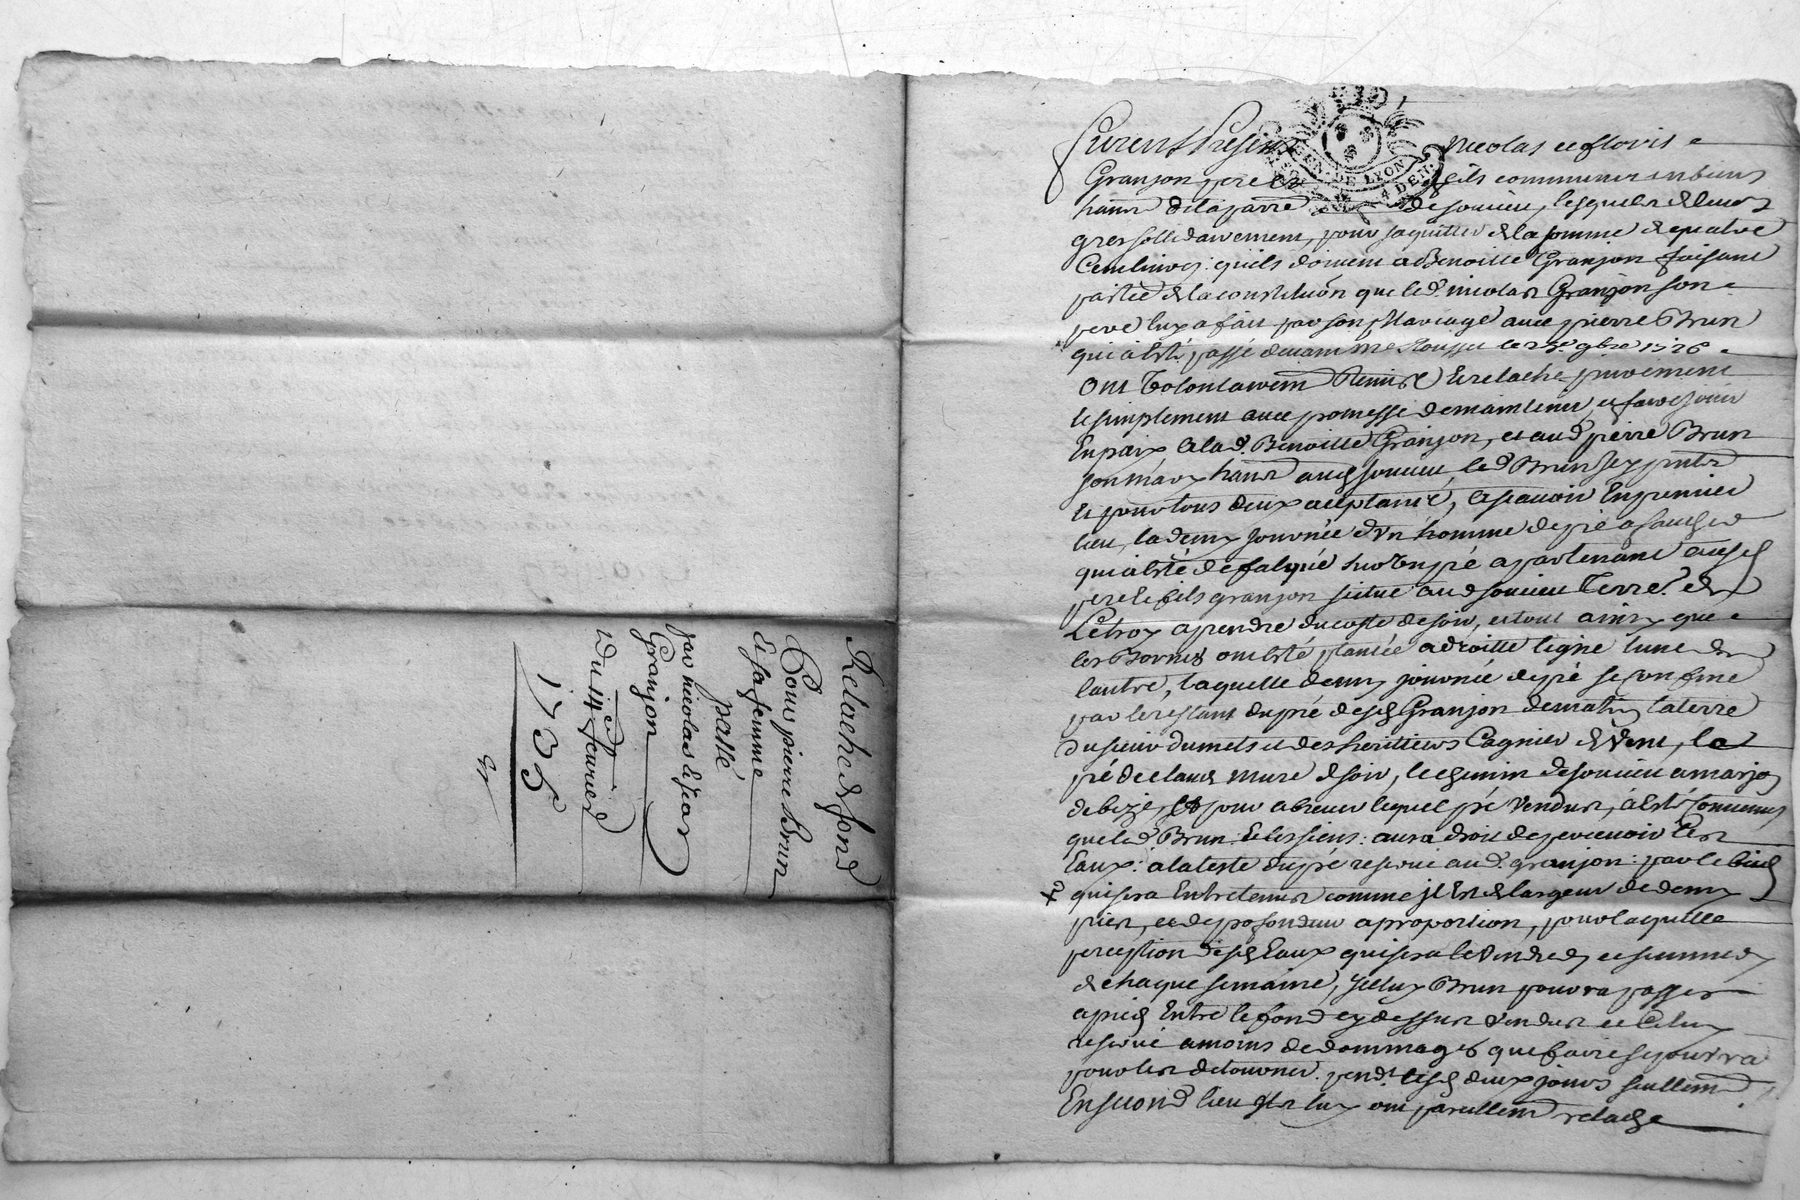 Relache de fond
Pour pierre Brun
et sa femme
passé
par nicolas et jean
Granjon
Du 14e feurier
1735
Furent Presens Nicolas et
Granjon pere et fils communs en biens
hants de la parre de soucieu, lesquels de leurs
gres sollidairement, pour saquitter de la somme de quatre
Cent livres quils doivent a Benoitte Granjon faisant
partie de la constitution que led. nicolas Granjon son
pere luy a fait par son Mariage avec pierre Brun
qui a esté passé devant me le 9bre 1726
Ont Volontairemt Remis Et relaché purement
et simplement avec promesse de maintenir, et faire jouir
En paix a lad. Benoitte Granjon, et aud pierre Brun
son mary hant aud soucieu, led Brun icy pnt
et pour tous deux acceptant, a scavoir En premier
lieu, la demy journée d'un homme de pré a faucher
qui a esté defalqué sur Un pré apartenant ausd
pere et fils granjon scitué aud soucieu Terre de
a prendre du costé de soir, et tout ainsy que
les Bornes ont esté plantée a droitte ligne lune de
lautre, laquelle demy journée de pré se confine
par le restant du pré desd Granjon de matin, la terre
du sieur dumets et des heritiers Cagnier de Vent, le
pré de claud mure de soir, le chemin de soucieu a
de bize, et pour abreuer lequel pré Vendu, a esté convenus
que led Brun et les siens aura droit de percevoir Les
Eaux a la teste du pré reservé aud. granjon par le bied
qui sera Entretenus comme il Est de largeur de demy
pied, et de profondeur a proportion, pour laquelle
perception desd Eaux qui sera le Vendredy et sammedy
de chaque semaine, Iceluy Brun pourra passer
a pied Entre le fond cy dessus Vendus et Celuy
reservé a moins de dommages que faire se pourra
pour les detourner pendt lesd deux jours seullemt
En second lieu Ils luy ont pareillemt relaché